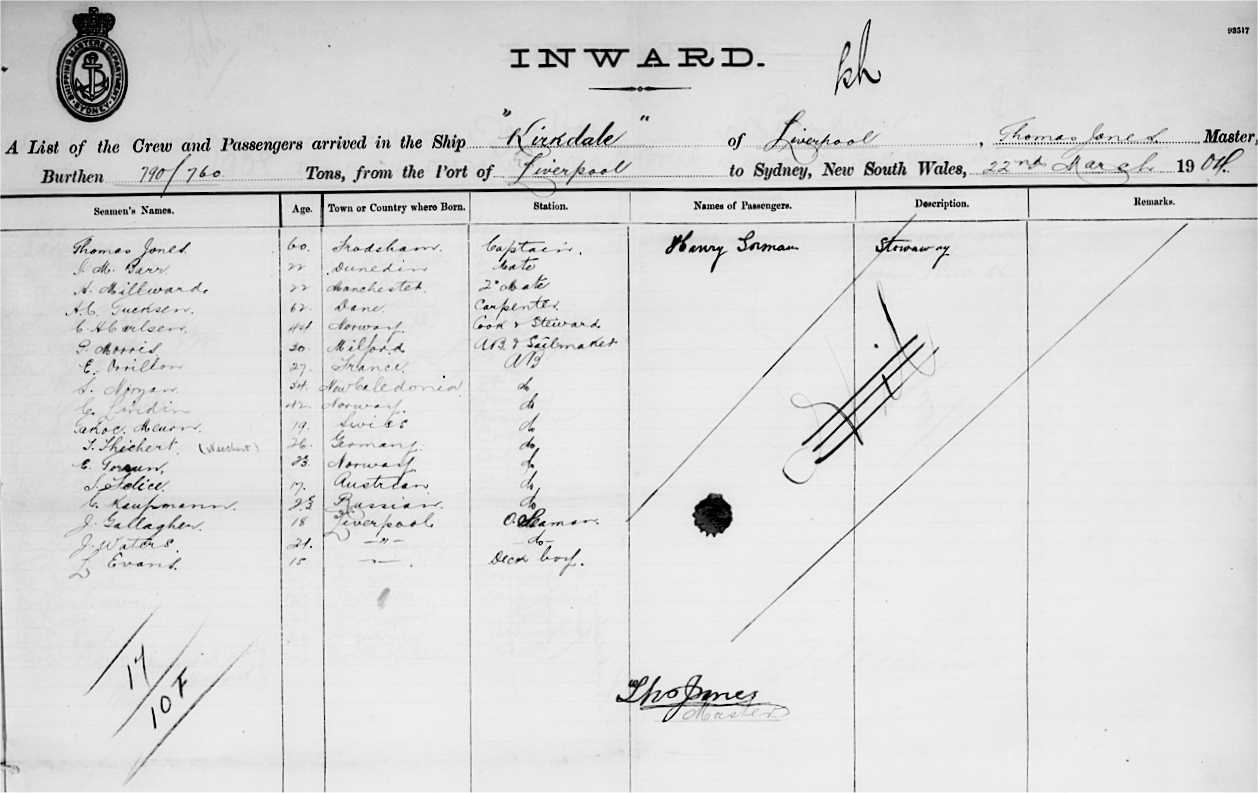 93517
SHIPPING MASTERS DEPARTMENT SYDNEY
INWARD.
A List of the Crew and Passengers arrived in the Ship "Kirkdale" of Liverpool, Thomas Jones Master,
Burthen 790/760 Tons, from the Port of Liverpool to Sydney, New South Wales, 22nd March 1904.
Seamen's Names. Age. Town or Country where Born. Station. Names of Passengers. Description. Remarks.
Thomas Jones 60. Frodsham. Captain. Henry Stowaway
M. Barr 22 Dunedin Mate
A. Millward 22 Manchester 2nd Mate
62. Dane. Carpenter
C. H. Carlsen 44 Norway Cook & Steward
Morris 30. Milford AB & Sailmaker
E. 27. France. AB
34. New Caledonia do
C. 42 Norway. do
19. Swiss do
26. Germany. do
E. 23. Norway do
Felice 17. Austrian do
C. Kaufmann Russian do
J. Gallagher. 18 Liverpool O. Seaman.
J. Waters. 21. -"- -do-
L Evans. 15 Deck boy.
17
10 F
Thos Jones
Master